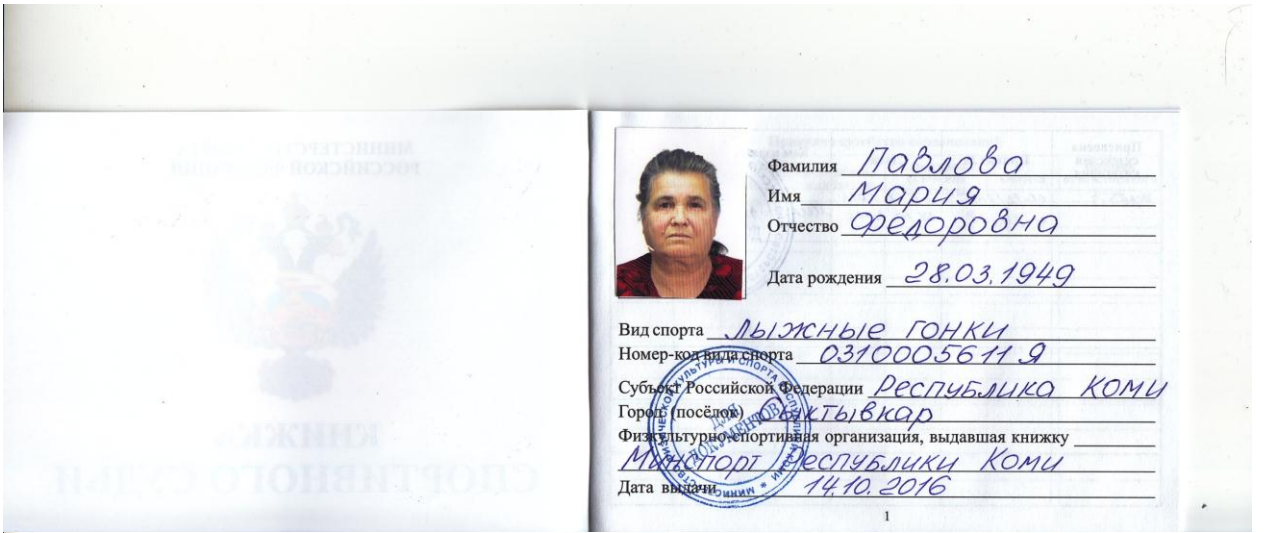 МИНИСТЕРСТВО
РОССИЙСКОЙ ФЕДЕРАЦИИ
КНИЖКА
СПОРТИВНОГО СУДЬИ
Фамилия Павлова
Имя Мария
Отчество Федоровна
Дата рождения 28.03.1949
Вид спорта лыжные гонки
Номер-код вида спорта 0310005611Я
Субъект Российской Федерации Республика Коми
Город (посёлок) Сыктывкар
Физкультурно-спортивная организация, выдавшая книжку
Минспорт Республики Коми
Дата выдачи 14.10.2016
ДЛЯ
ДОКУМЕНТОВ
1